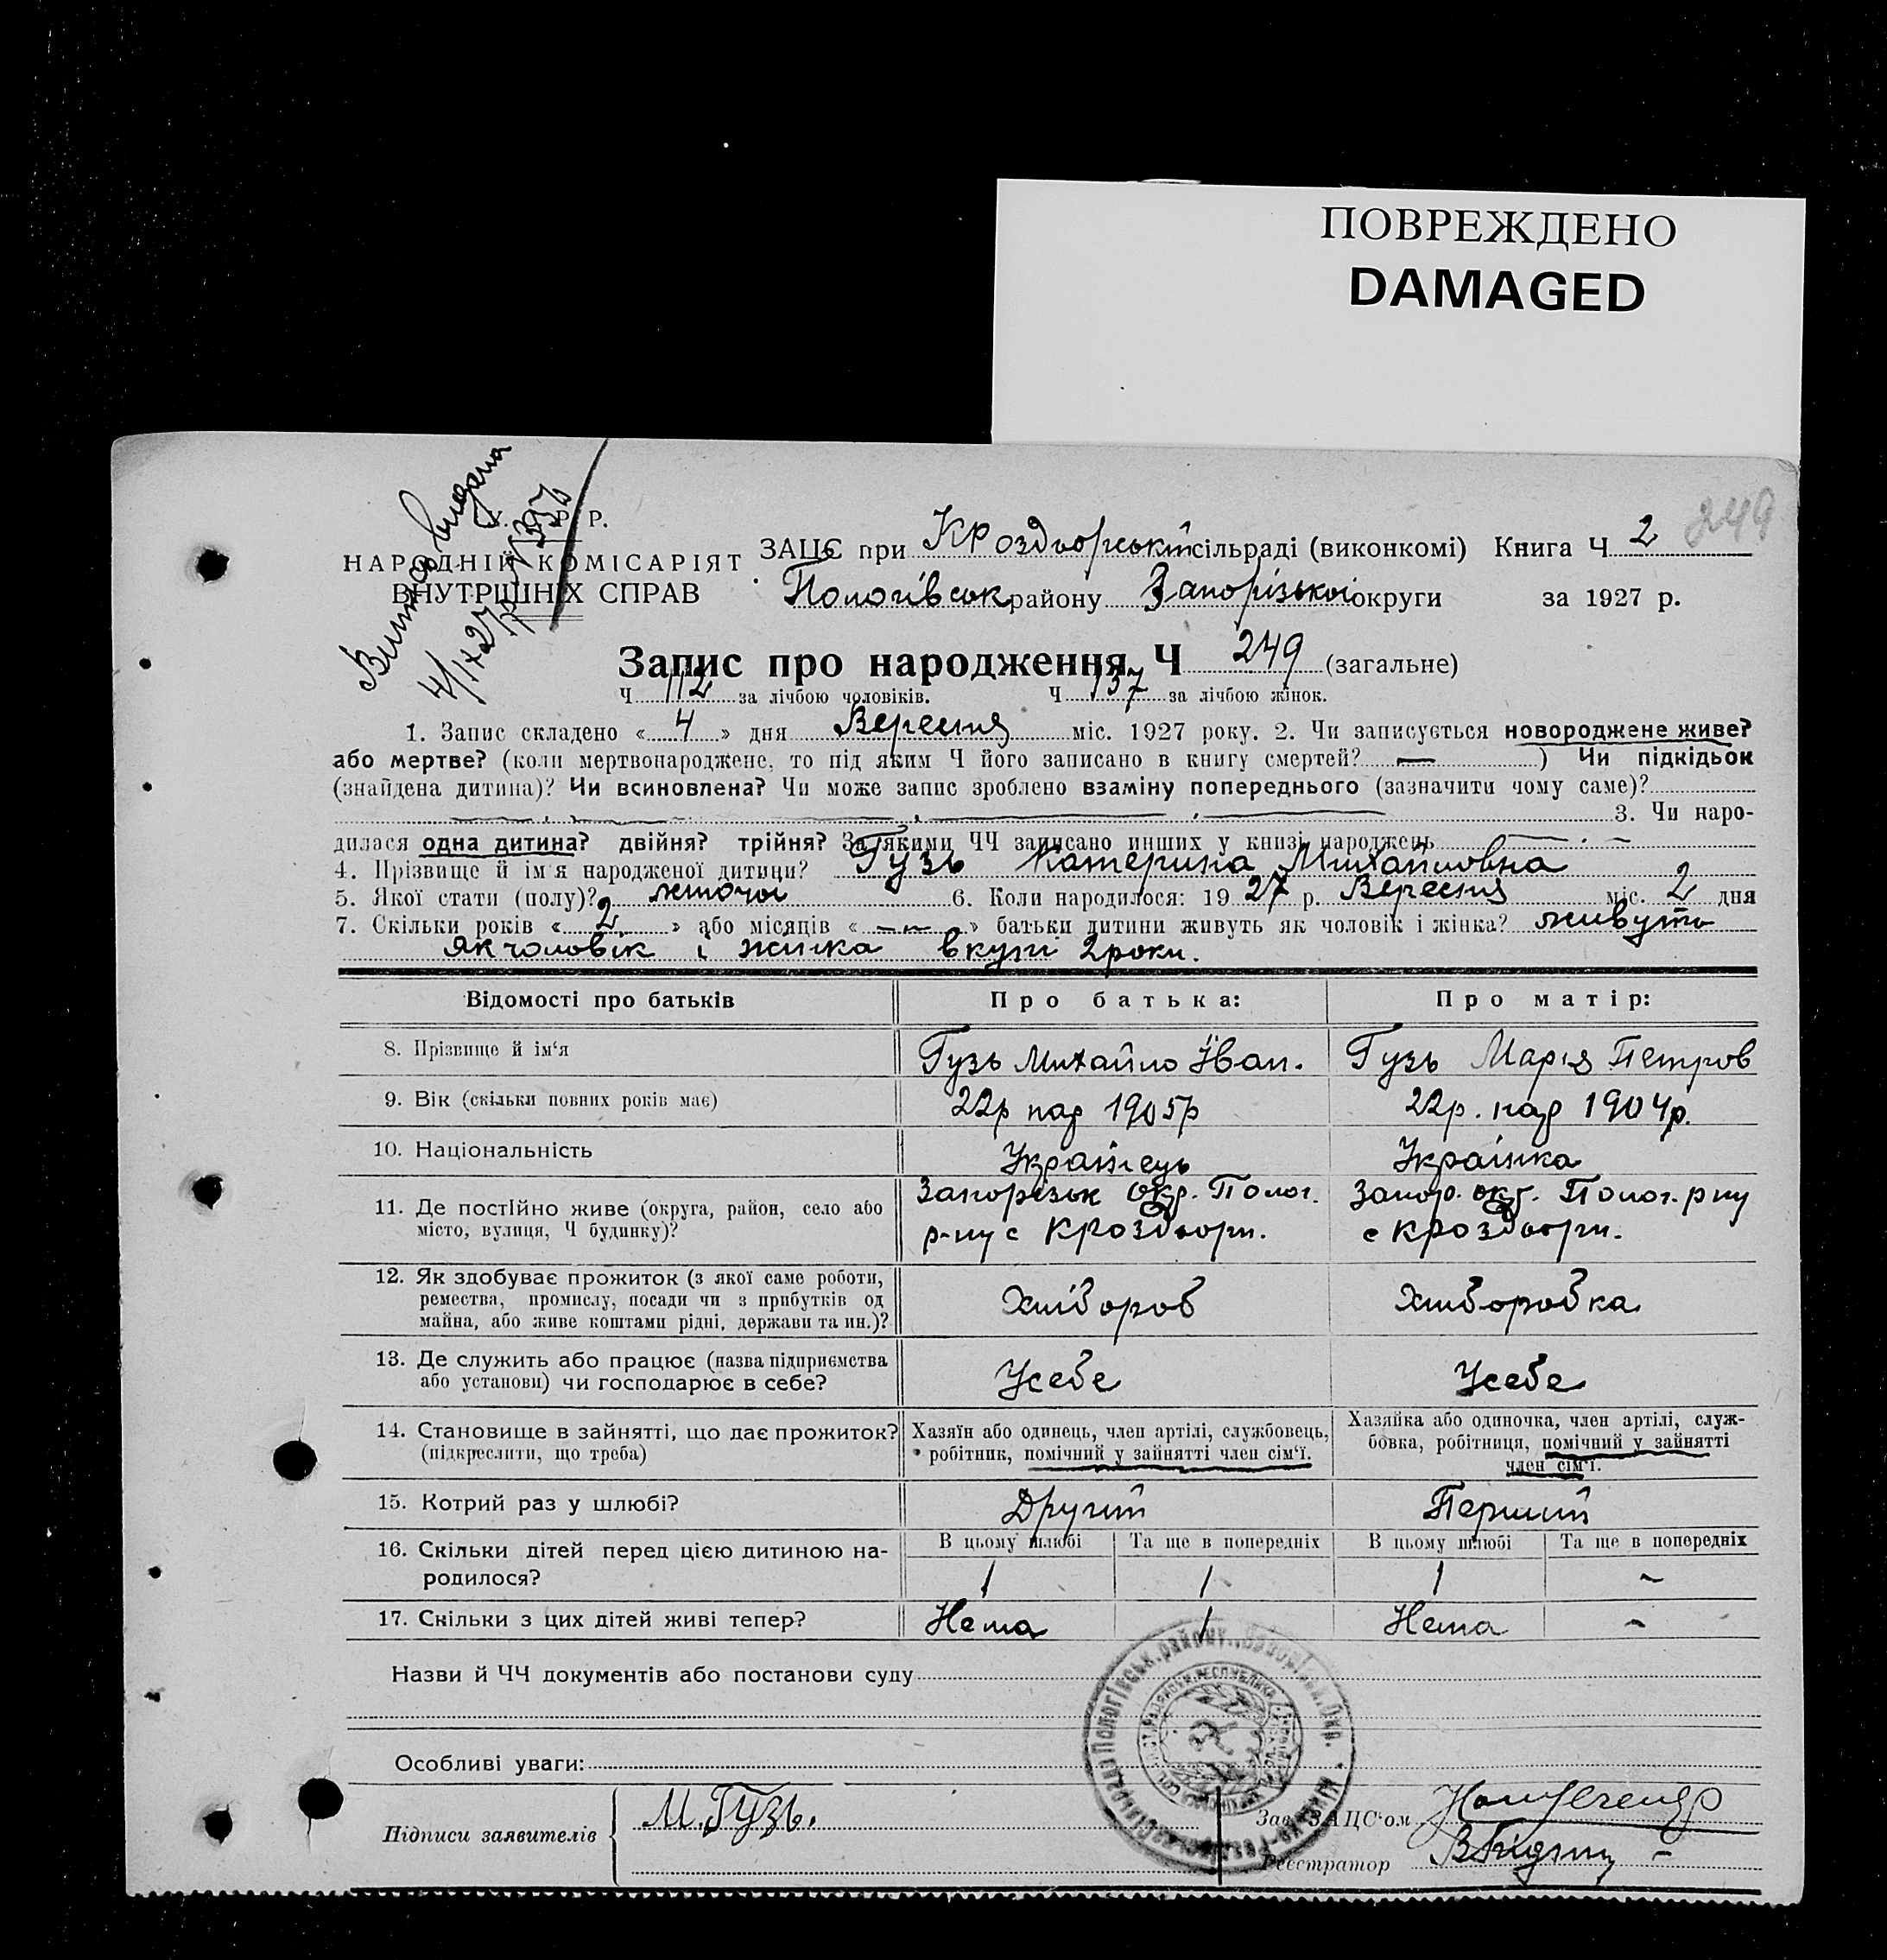 ПОВРЕЖДЕНО
DAMAGED
249
Витяг видана
4/IX 27 р
У. С. Р. Р.
НАРОДНІЙ КОМІСАРІЯТ
ВНУТРІШНІХ СПРАВ
ЗАЦС при КРоздворській сільраді (виконкомі) Книга Ч 2
Пологівськ району Запорізької округи за 1927 р.
Запис про народження Ч 249 (загальне)
Ч 112 за лічбою чоловіків. Ч 137 за лічбою жінок.
1. Запис складено « 4 » дня Вересня міс. 1927 року. 2. Чи записується новороджене живе?
або мертве? (коли мертвонароджене, то під яким Ч його записано в книгу смертей? — ) Чи підкідьок
(знайдена дитина)? Чи всиновлена? Чи може запис зроблено взаміну попереднього (зазначити чому саме)?
3. Чи наро-
дилася одна дитина? двійня? трійня? За якими ЧЧ записано инших у книзі народжень
4. Прізвище й ім'я народженої дитини? Гузь Катерина Михайловна
5. Якої стати (полу)? жіночої 6. Коли народилося: 1927 р. Вересня міс. 2 дня
7. Скільки років « 2 » або місяців « — » батьки дитини живуть як чоловік і жінка? живуть
як чоловік і жінка вкупі 2 роки.
Відомості про батьків Про батька: Про матір:
8. Прізвище й ім'я Гузь Михайло Іван. Гузь Марія Петров
9. Вік (скільки повних років має) 22р нар 1905р 22р. нар 1904р.
10. Національність Українець Українка
11. Де постійно живе (округа, район, село або Запорізьк окр. Полог. Запор. окр. Полог. р ну
місто, вулиця, Ч будинку)? р-ну с Кроздори. с Кроздори.
12. Як здобуває прожиток (з якої саме роботи,
ремества, промислу, посади чи з прибутків од Хлібороб Хлиборобка
майна, або живе коштами рідні, держави та ин.)?
13. Де служить або працює (назва підприємства Усебе Усебе
або установи) чи господарює в себе?
14. Становище в зайнятті, що дає прожиток? Хазяїн або одинець, член артілі, службовець, Хазяйка або одиночка, член артілі, служ-
(підкреслити, що треба) робітник, помічний у зайнятті член сім'ї. бовка, робітниця, помічний у зайнятті
член сім'ї.
15. Котрий раз у шлюбі? Другий Перший
16. Скільки дітей перед цією дитиною на- В цьому шлюбі Та ще в попередніх В цьому шлюбі Та ще в попередніх
родилося? 1 1 1 ~
17. Скільки з цих дітей живі тепер? Нема 1 Нема -
Назви й ЧЧ документів або постанови суду
Особливі уваги:
Підписи заявителів М. Гузь.
Зав. ЗАЦС'ом
Реєстратор